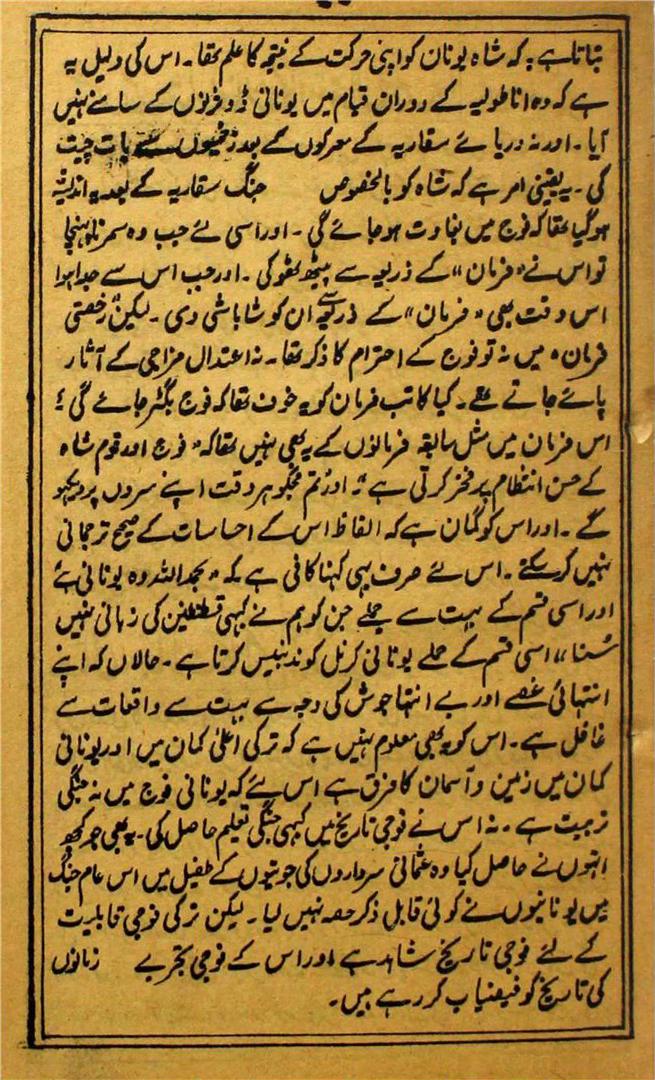 بتاتا ہے۔ کہ شاہ یونان کو اپنی حرکت کے نتیجہ کا علم تھا۔ اس کی دلیل یہ
ہے کہ وہ اناطولیہ کے دوران قیام میں یونانی ڈوفرنوں کے سامنے نہیں
آیا۔ اور نہ دریائے سقاریہ کے معرکوں کے بعد زخمیوں سے بات چیت
کی۔ یہ یقینی امر ہے کہ شاہ کو بالخصوص جنگ سقاریہ کے بعد یہ اندیشہ
ہوگیا تھا کہ فوج میں بغاوت ہو جائے گی۔ اور اسی لئے جب وہ سمرنا پہنچا
تو اس نے "فرمان" کے ذریعہ سے پیٹھ ٹھوکی۔ اور جب اس سے جدا ہوا
اس وقت بھی "فرمان" کے ذریعے ان کو شاباشی دی۔ لیکن "رخصتی
فرمان" میں نہ تو فوج کے احترام کا ذکر تھا۔ نہ اعتدال مزاجی کے آثار
پائے جاتے تھے۔ کیا کاتب فرمان کو یہ خوف تھا کہ فوج بگڑ جائے گی؟
اس فرمان میں مثل سابقہ فرمانوں کے یہ بھی نہیں تھا کہ "فوج اور قوم شاہ
کے حسن انتظام پر فخر کرتی ہے" اور "تم مجھکو ہر وقت اپنے سروں پر دیکھو
گے۔ اور اس کو گمان ہے کہ الفاظ اس کے احساسات کے صحیح ترجمانی
نہیں کر سکتے۔ اس لئے صرف یہی کہنا کافی ہے کہ "بحمد اللہ وہ یونانی ہے
اور اسی قسم کے بہت سے جملے جن کو ہم نے کبھی قسطنطین کی زبانی نہیں
سنا" اسی قسم کے جملے یونانی کرنل کوندیلیس کرتا ہے۔ حالاں کہ اپنے
انتہائی غصے اور بے انتہا جوش کی وجہ سے بہت سے واقعات سے
غافل ہے۔ اس کو یہ بھی معلوم نہیں ہے کہ ترکی اعلیٰ کمان میں اور یونانی
کمان میں زمین و آسمان کا فرق ہے اس لئے کہ یونانی فوج میں نہ جنگی
تربیت ہے۔ نہ اس نے فوجی تاریخ میں کبھی جنگی تعلیم حاصل کی۔ پھر بھی جو کچھ
انہوں نے حاصل کیا وہ عثمانی سرداروں کی جوتیوں کے طفیل میں اس عام جنگ
میں یونانیوں نے کوئی قابل ذکر حصہ نہیں لیا۔ لیکن ترکی فوجی قابلیت
کے لئے فوجی تاریخ شاہد ہے اور اس کے فوجی تجربے زمانوں
کی تاریخ کو فیضیاب کر رہے ہیں۔